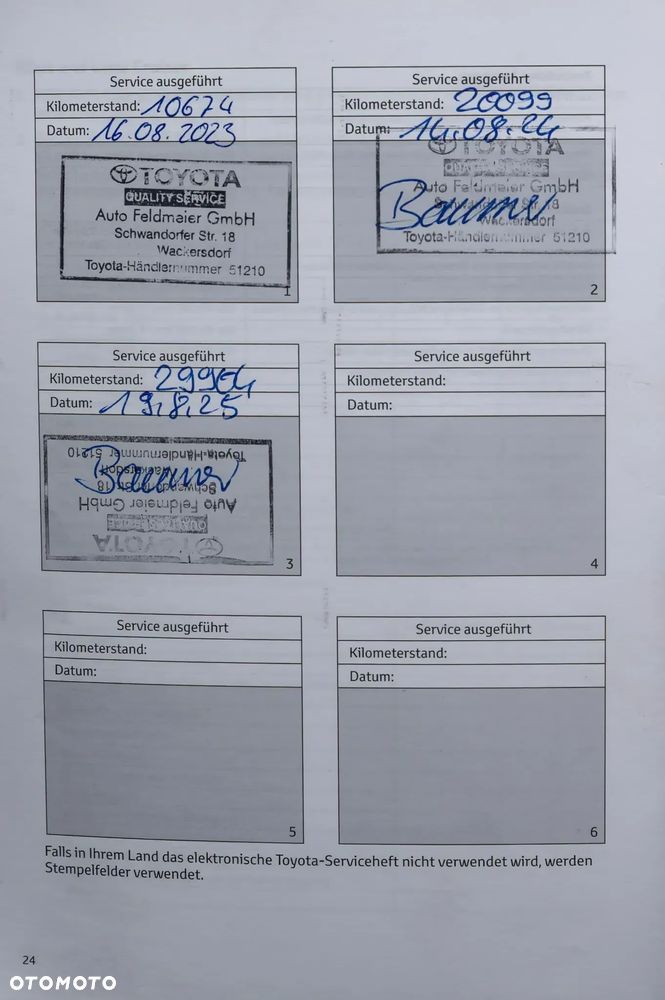 Service ausgeführt
Kilometerstand: 10674
Datum: 16.08.2023
TOYOTA
QUALITY SERVICE
Auto Feldmeier GmbH
Schwandorfer Str. 18
Wackersdorf
Toyota-Händlernummer 51210
1
Service ausgeführt
Kilometerstand: 20099
Datum: 14.08.24
TOYOTA
Auto Feldmeier GmbH
Schwandorfer Str. 18
Wackersdorf
Toyota-Händlernummer 51210
2
Service ausgeführt
Kilometerstand: 29964
Datum: 19.8.25
Toyota-Händlernummer 51210
Wackersdorf
Schwandorfer Str. 18
Auto Feldmeier GmbH
QUALITY SERVICE
TOYOTA
3
Service ausgeführt
Kilometerstand:
Datum:
4
Service ausgeführt
Kilometerstand:
Datum:
5
Service ausgeführt
Kilometerstand:
Datum:
6
Falls in Ihrem Land das elektronische Toyota-Serviceheft nicht verwendet wird, werden
Stempelfelder verwendet.
24
OTOMOTO